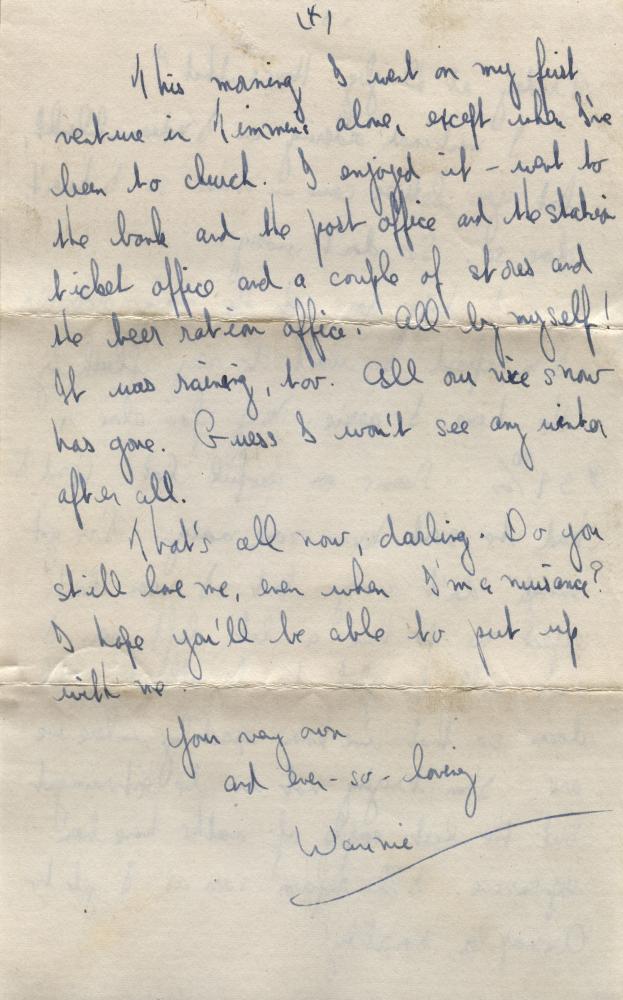 (4)
This morning I went on my first
venture in Timmins alone, except when I've
been to church. I enjoyed it - went to
the bank and the post office and the station
ticket office and a couple of stores and
the beer ration office. All by myself!
It was raining, too. All our nice snow
has gone. Guess I won't see any winter
after all.
That's all now, darling. Do you
still love me, even when I'm a nuisance?
I hope you'll be able to put up
with me.
Your very own
and ever-so-loving